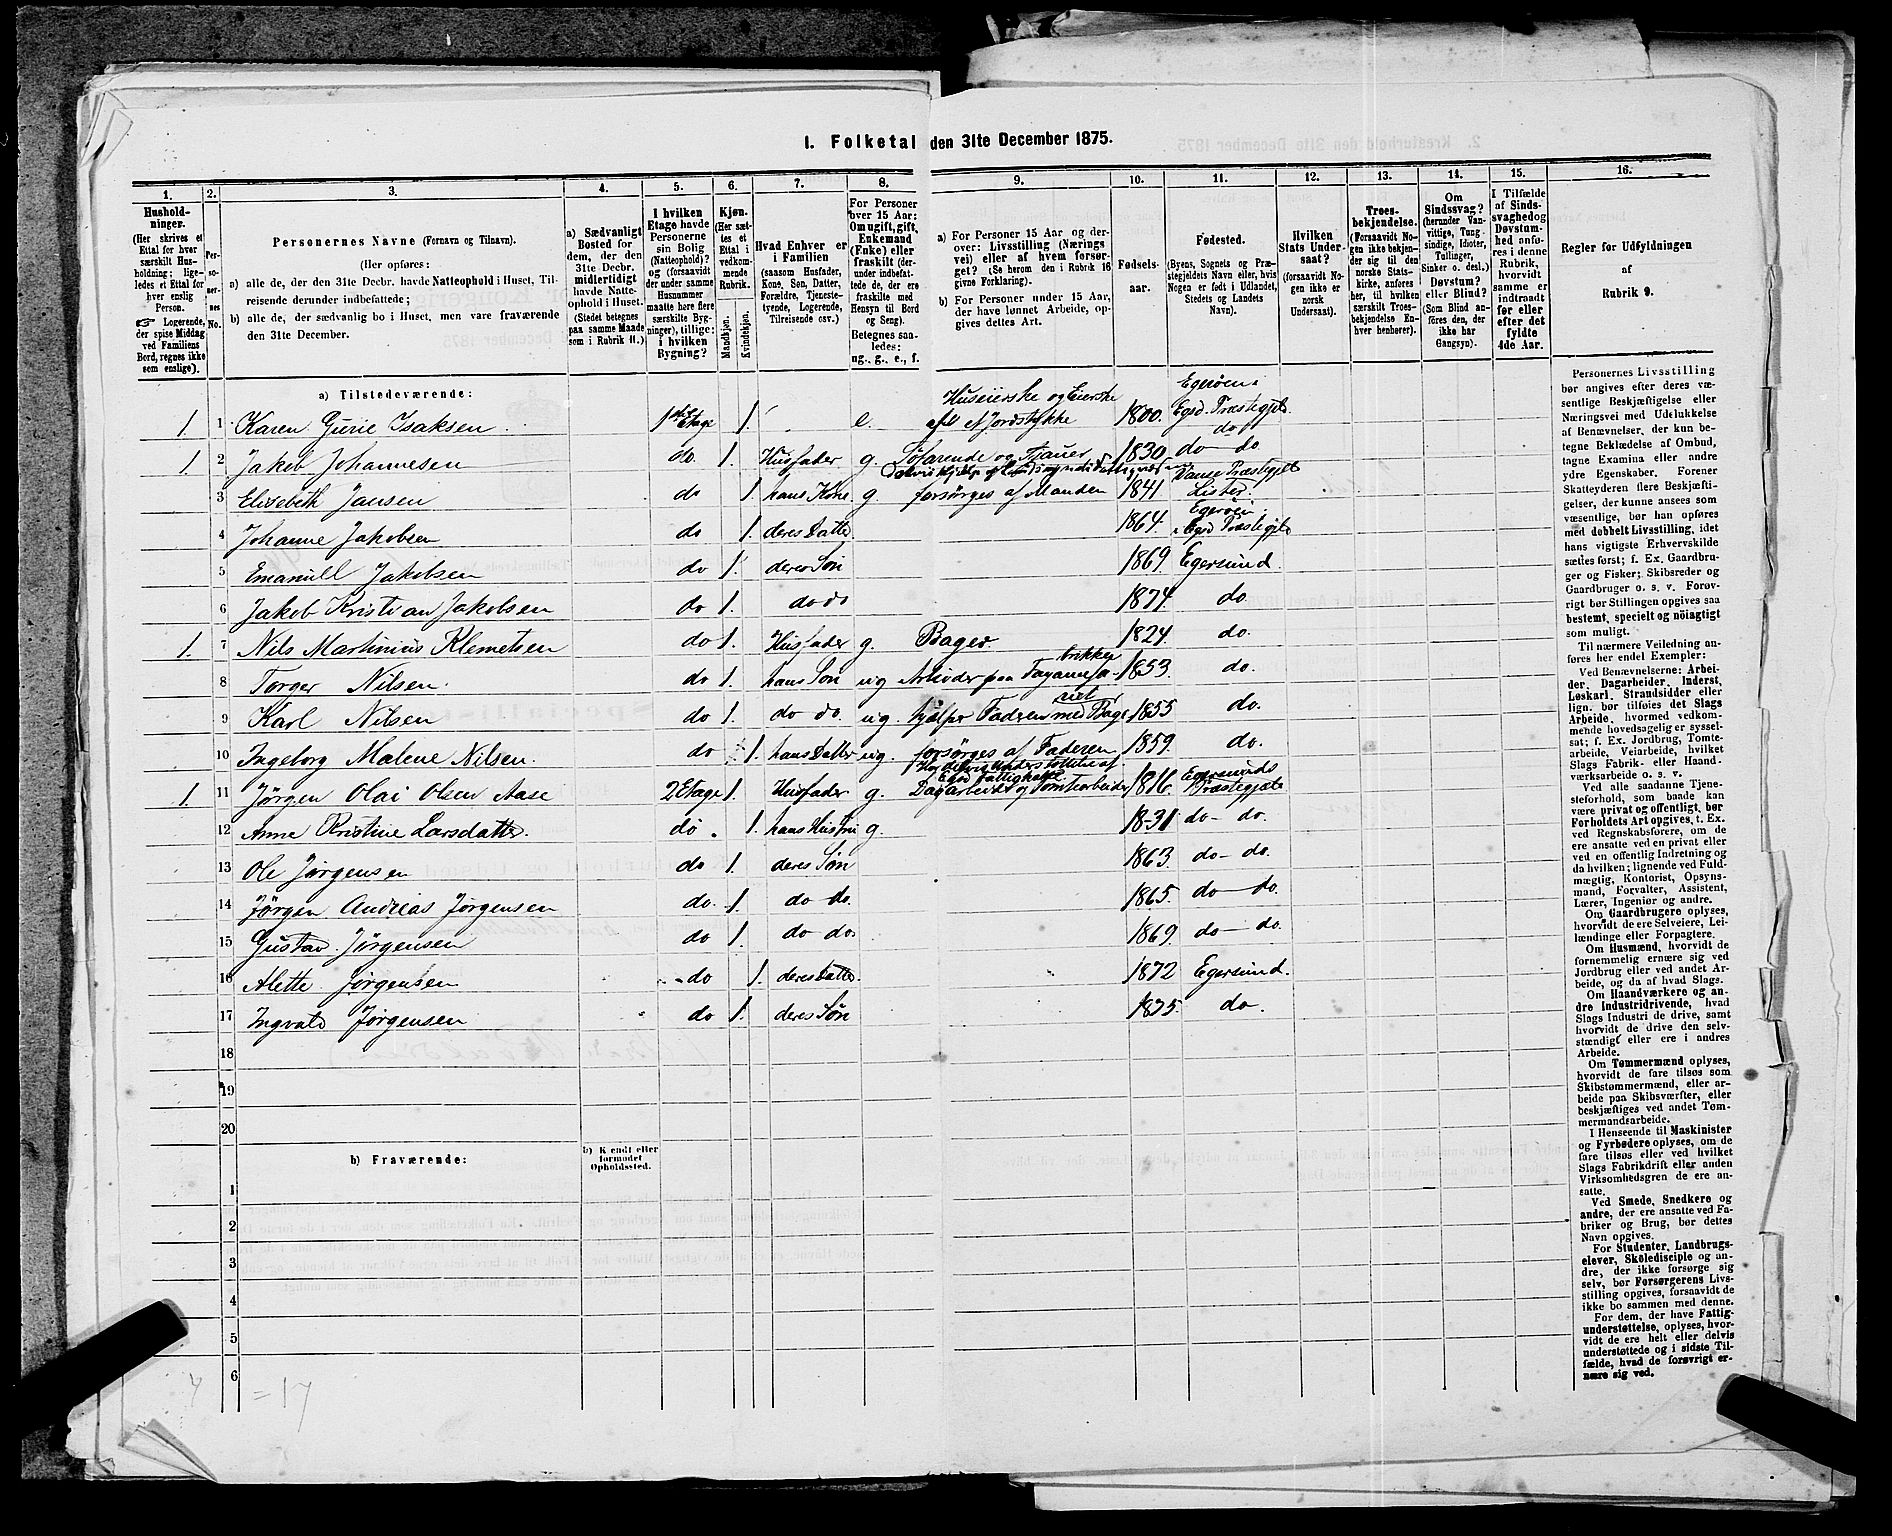 I. Folketal den 31te December 1875.
1. 2. 3. 4. 5. 6. 7. 8. 9. 10. 11. 12. 13. 14. 15. 16.
Husholdninger.
(Her skrives et
Ettal for hver
særskilt Husholdning;
ligeledes et Ettal for
hver enslig
Person.
Logerende,
der spise Middag
ved Familiens
Bord, regnes ikke
som enslige).
Personernes
No.
Personernes Navne (Fornavn og Tilnavn).
(Her opføres:
a) alle de, der den 31te Decbr. havde Natteophold i Huset, Tilreisende derunder indbefattede;
b) alle de, der sædvanlig bo i Huset, men vare fraværende
den 31te December.
a) Sædvanligt
Bosted for
dem, der den
31te Decbr.
midlertidigt
havde Natteophold i Huset.
(Stedet betegnes
paa samme Maade
som i Rubrik 11.)
I hvilken
Etage havde
Personerne
sin Bolig
(Natteophold)?
og (forsaavidt
der under samme
Husnummer
maatte høre flere
særskilte Bygninger), tillige:
i hvilken
Bygning?
Kjøn.
(Her sættes et
Ettal i
vedkommende
Rubrik.
Mandkjøn.
Kvindekjøn.
Hvad Enhver er
i Familien
(saasom Husfader,
Kone, Søn, Datter,
Forældre, Tjenestetyende, Logerende,
Tilreisende osv.)
For Personer
over 15 Aar:
Om ugift, gift,
Enkemand
(Enke) eller
fraskilt (derunder indbefattede de, der ere
fraskilte med
Hensyn til Bord
og Seng).
Betegnes saaledes:
ug., g., e., f.
a) For Personer 15 Aar og derover: Livsstilling (Næringsvei) eller af hvem forsørget? (Se herom den i Rubrik 16
givne Forklaring).
b) For Personer under 15 Aar,
der have lønnet Arbeide, opgives dettes Art.
Fødselsaar.
Fødested.
(Byens, Sognets og Præstegjeldets Navn eller, hvis
Nogen er født i Udlandet,
Stedets og Landets
Navn).
Hvilken
Stats Undersaat?
(forsaavidt Nogen ikke er
norsk
Undersaat).
Troesbekjendelse.
(Forsaavidt Nogen ikke bekjender sig til den
norske Statskirke, anføres
her, til hvilken
særskilt Troesbekjendelse Enhver henhører).
Om
Sindssvag?
(herunder Vanvittige, Tungsindige, Idioter,
Tullinger,
Sinker o. desl.)
Døvstum?
eller Blind?
(Som Blind anføres den, der
ikke har
Gangsyn).
I Tilfælde
af Sindssvaghed og
Døvstumhed anføres i denne
Rubrik,
hvorvidt
samme er
indtraadt
før eller
efter det
fyldte
4de Aar.
Regler for Udfyldningen
af
Rubrik 9.
a) Tilstedeværende:
1. 1 Karen Gurie Isaksen 1ste Etage 1. e. Huseierske og Eierske af et Jordstykke 1800. Egerøen i Egsd. Præstegjeld.
1 2 Jakob Johannesen do. 1. Husfader g. Søfarende og 1830 do do do
3 Elisebeth Jansen do 1. hans Kone g forsørges af Manden 1841 Vanse Præstegjeld Lister.
4 Johanne Jakobsen do 1. deres Datter. 1864. Egerøen i Egsd Præstegjeld
5 Emanuel Jakobsen do 1. deres Søn 1869 Egersund
6 Jakob Kristian Jakobsen do 1. do do 1874. do.
1. 7 Nils Martinius Klemetsen do 1. Husfader g. Bager. 1824. do.
8 Torger Nilsen. do 1. hans Søn ug Arbeider paa Fayancefabrikken 1853. do.
9 Karl Nilsen do 1. do do. ug. hjælper Faderen med Bageriet 1855 do.
10 Ingeborg Malene Nilsen. do 1. hans Datter ug. forsørges af Faderen 1859. do.
1. 11 Jørgen Olai Olsen Aase 2 Etage 1. Husfader g. Har delvis Understøttelse af Egsd Fattigkasse. Dagarbeider og Tomtearbeider 1816. Egersunds Præstegjeld
12 Anne Kristine Larsdatter. do. 1. hans Hustru g. 1831 do - do.
13 Ole Jørgensen do 1. deres Søn 1863. do - do.
14 Jørgen Andreas Jørgensen do. 1. do do. 1865. do - do.
15 Gustav Jørgensen do 1. do do 1869. do - do.
16 Alette Jørgensen do 1. deres Datter. 1872 Egersund.
17 Ingvald Jørgensen do 1. deres Søn 1875. do.
18
19
20
b) Fraværende:
b) Kjendt eller
formodet
Opholdssted.
1
2
3
4
5
6
4 = 17
Personernes Livsstilling
bør angives efter deres væsentlige Beskjæftigelse eller
Næringsvei med Udelukkelse
af Benævnelser, der kun betegne Beklædelse af Ombud,
tagne Examina eller andre
ydre Egenskaber. Forener
Skatteyderen flere Beskjæftigelser, der kunne ansees som
væsentlige, bør han opføres
med dobbelt Livsstilling, idet
hans vigtigste Erhvervskilde
sættes først; f. Ex. Gaardbruger og Fisker; Skibsreder og
Gaardbruger o. s. v. Forøvrigt bør Stillingen opgives saa
bestemt, specielt og nøiagtigt
som muligt.
Til nærmere Veiledning anføres her endel Exempler:
Ved Benævnelserne: Arbeider, Dagarbeider, Inderst,
Løskarl, Strandsidder eller
lign. bør tilføies det Slags
Arbeide, hvormed vedkommende hovedsagelig er sysselsat; f. Ex. Jordbrug, Tomtearbeide, Veiarbeide, hvilket
Slags Fabrik- eller Haandværksarbeide o. s. v.
Ved alle saadanne Tjenesteforhold, som baade kan
være privat og offentligt, bør
Forholdets Art opgives, t. Ex.
ved Regnskabsførere, om de
ere ansatte ved en privat eller
ved en offentlig Indretning og
da hvilken; lignende ved Fuldmægtig, Kontorist, Opsynsmand, Forvalter, Assistent,
Lærer, Ingeniør og andre.
Om Gaardbrugere oplyses,
hvorvidt de ere Selveiere, Leilændinge eller Forpagtere.
Om Husmænd, hvorvidt de
fornemmelig ernære sig ved
Jordbrug eller ved andet Arbeide, og da af hvad Slags.
Om Haandværkere og andre Industridrivende, hvad
Slags Industri de drive, samt
hvorvidt de drive den selvstændigt eller ere i andres
Arbeide.
Om Tømmermænd oplyses,
hvorvidt de fare tilsøs som
Skibstømmermænd, eller arbeide paa Skibsværfter, eller
beskjæftiges ved andet Tømmermandsarbeide.
I Henseende til Maskinister
og Fyrbødere oplyses, om de
fare tilsøs eller ved hvilket
Slags Fabrikdrift eller anden
Virksomhedsgren de ere ansatte.
Ved Smede, Snedkere og
andre, der ere ansatte ved Fabriker og Brug, bør dettes
Navn opgives.
For Studenter, Landbrugselever, Skoledisciple og andre, der ikke forsørge sig
selv, bør Forsørgerens Livsstilling opgives, forsaavidt de
ikke bo sammen med denne.
For dem, der have Fattigunderstøttelse, oplyses, hvorvidt de ere helt eller delvis
understøttede og i sidste Tilfælde, hvad de forøvrigt ernære sig ved.